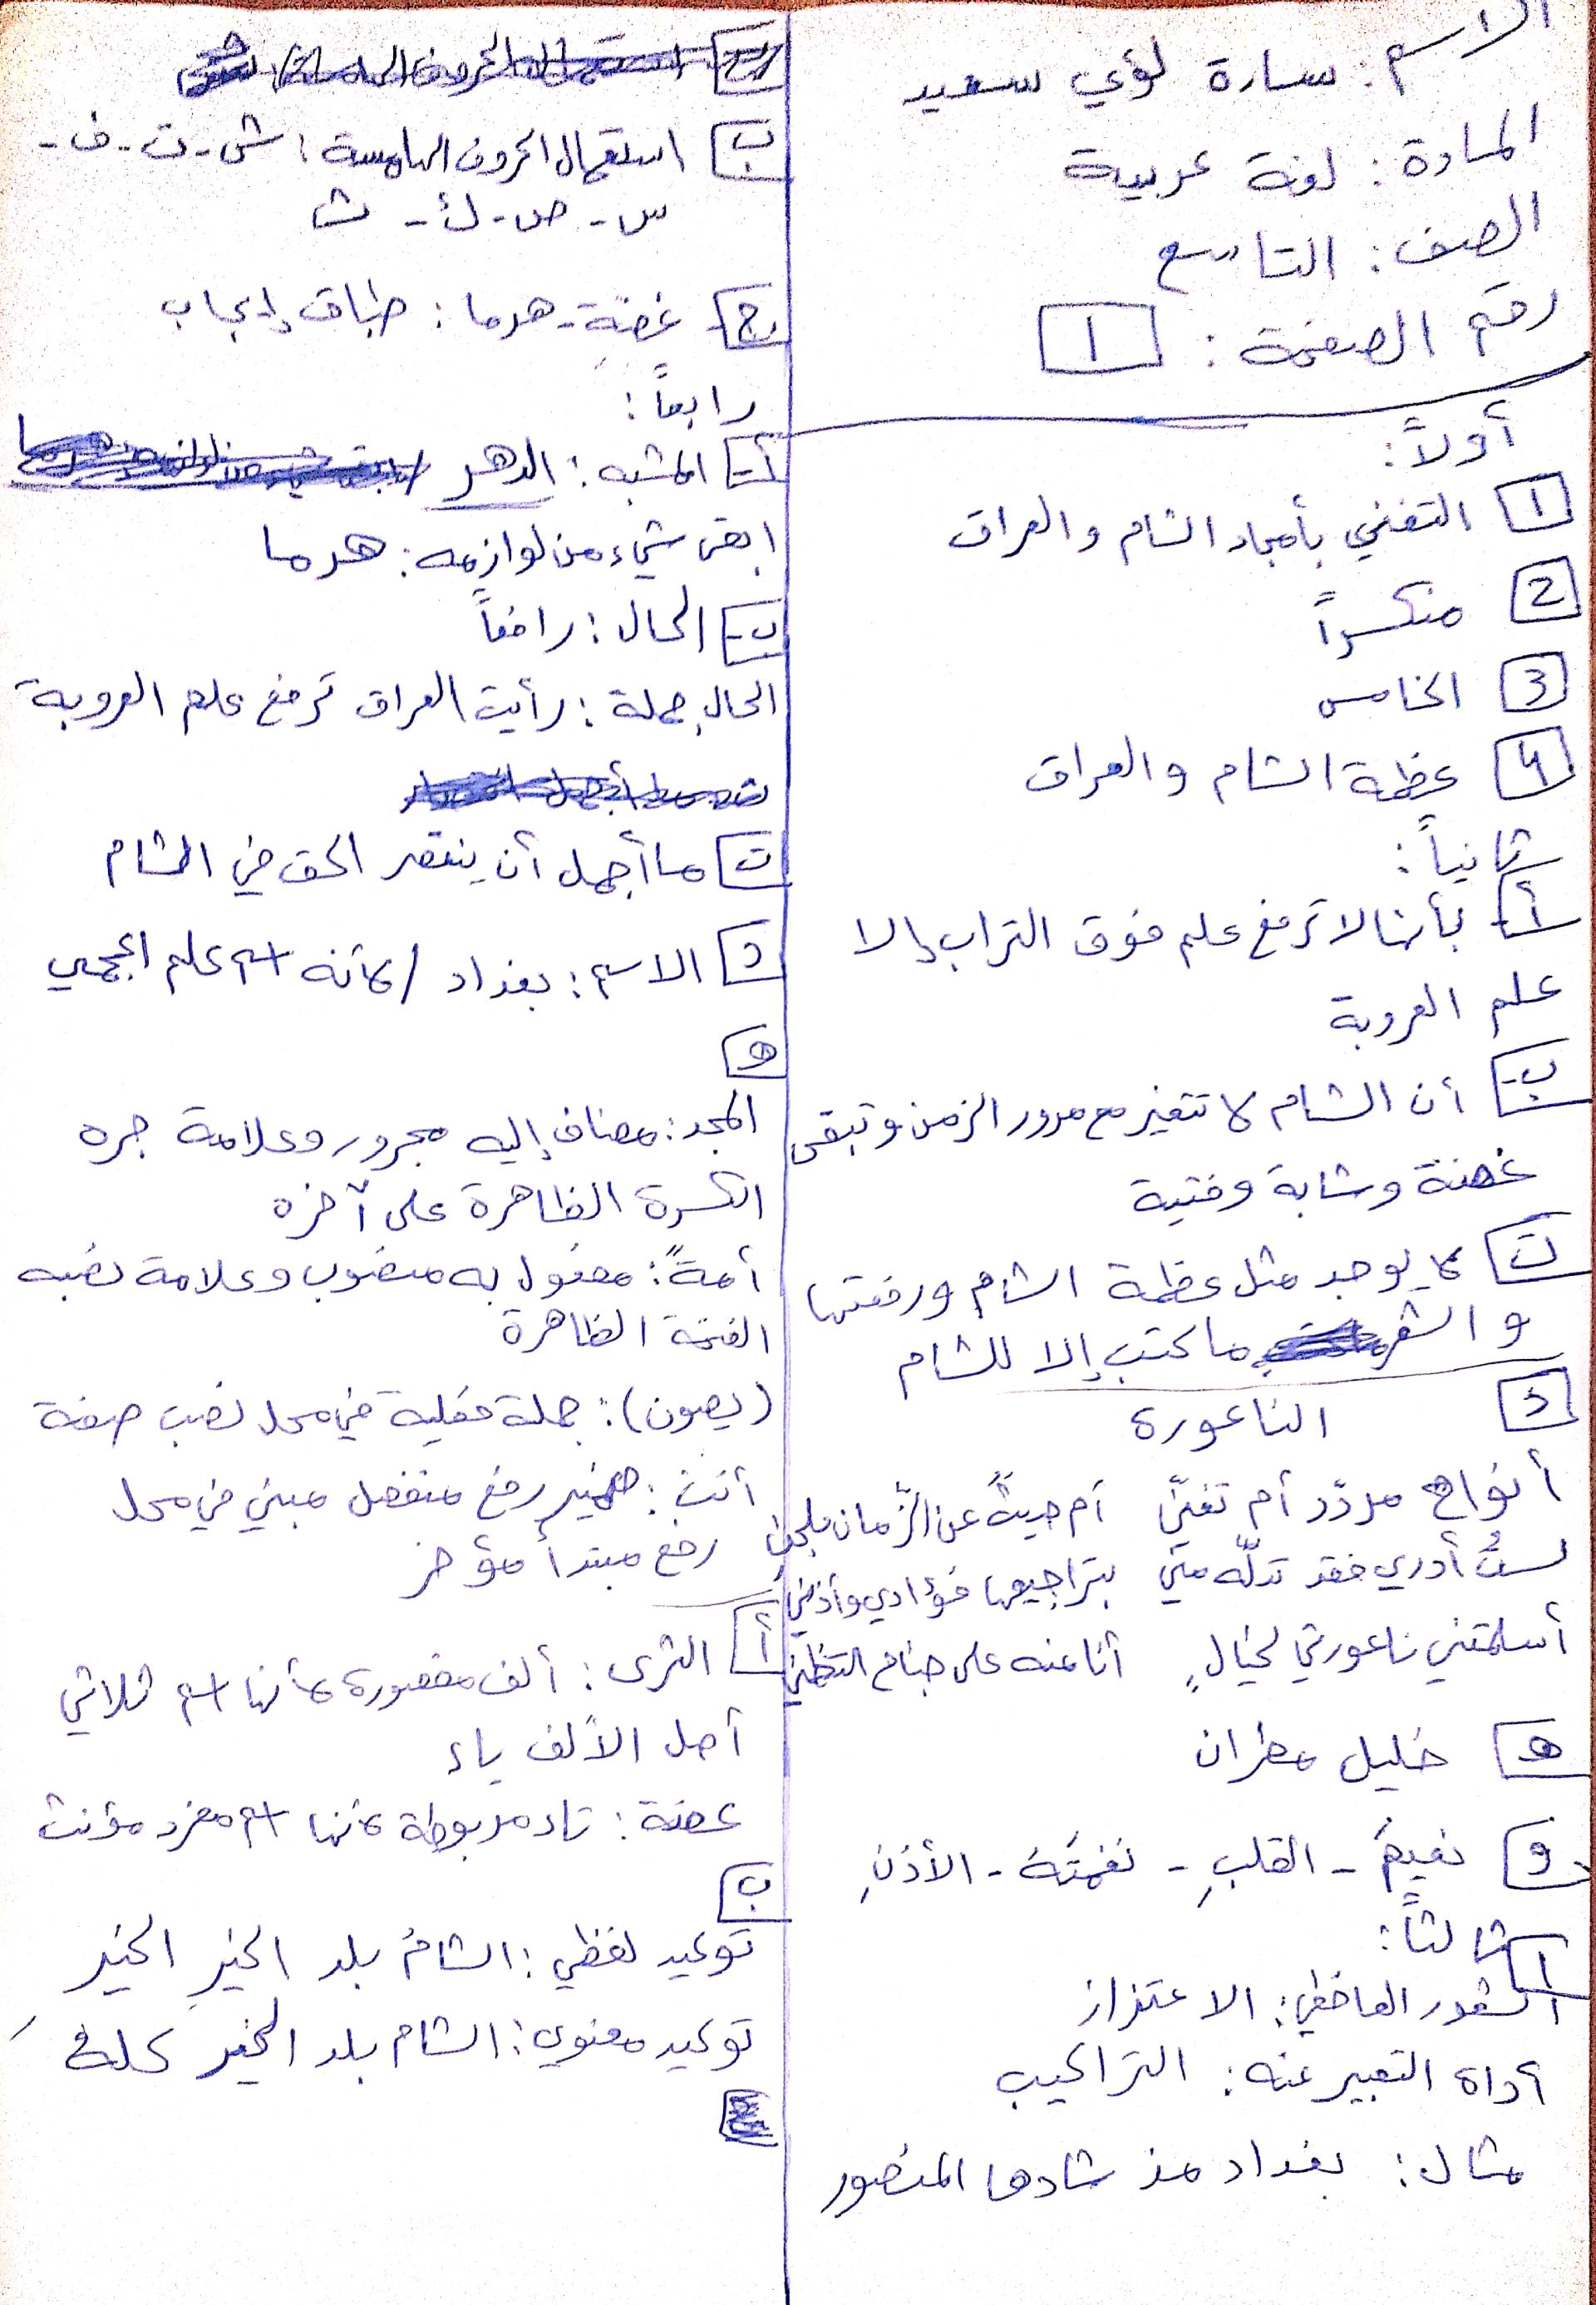 الاسم: سارة لؤي سعيد
المادة: لغة عربية
الصف: التاسع
رقم الصفحة: 1
أولاً:
1 التغني بأمجاد الشام والعراق
2 منكسراً
3 الخامس
4 عظمة الشام والعراق
ثانياً:
أ- بأنها لا ترفع علم فوق التراب إلا
علم العروبة
ب- أن الشام لا تتغير مع مرور الزمن وتبقى
غضة وشابة وفتية
ت لا يوجد مثل عظمة الشام ورفعتها
والشعر ما كتب إلا للشام
د الناعورة
أنواح مردّد أم تغنّي أم حديثٌ عن الزّمان بلحنِ
لستُ أدري فقد تدلّه منّي بتراجيعها فؤادي وأذني
أسلمتني ناعورتي لخيالٍ أنا منه على جناح التظني
هـ خليل مطران
و نعيمُ - القلبِ - نغمتَهُ - الأذنِ
ثالثاً:
أ الشعور العاطفي: الاعتزاز
أداة التعبير عنه: التراكيب
مثال: بغداد مذ شادها المنصور
ب استعمال الحروف الهامسة: ش - ت - ف -
س - ص - ك - ث
ج- غضّة - هرما: طباق إيجاب
رابعاً:
أ- المشبه: الدهر
ابقى شيء من لوازمه: هرما
ب- الحال: رافعاً
الحال جملة: رأيت العراق ترفع علم العروبة
ت ما أجمل أن ينتصر الحق في الشام
د الاسم: بغداد / لأنه اسم علم اعجمي
هـ
المجد: مضاف إليه مجرور وعلامة جره
الكسرة الظاهرة على آخره
أمةً: مفعول به منصوب وعلامة نصبه
الفتحة الظاهرة
(يصون): جملة فعلية في محل نصب صفة
أنت: ضمير رفع منفصل مبني في محل
رفع مبتدأ مؤخر
أ الثرى: ألف مقصورة لأنها اسم ثلاثي
أصل الألف ياء
غضة: تاء مربوطة لأنها اسم مفرد مؤنث
ب
توكيد لفظي: الشامُ بلد الخيرِ الخيرِ
توكيد معنوي: الشام بلد الخير كله